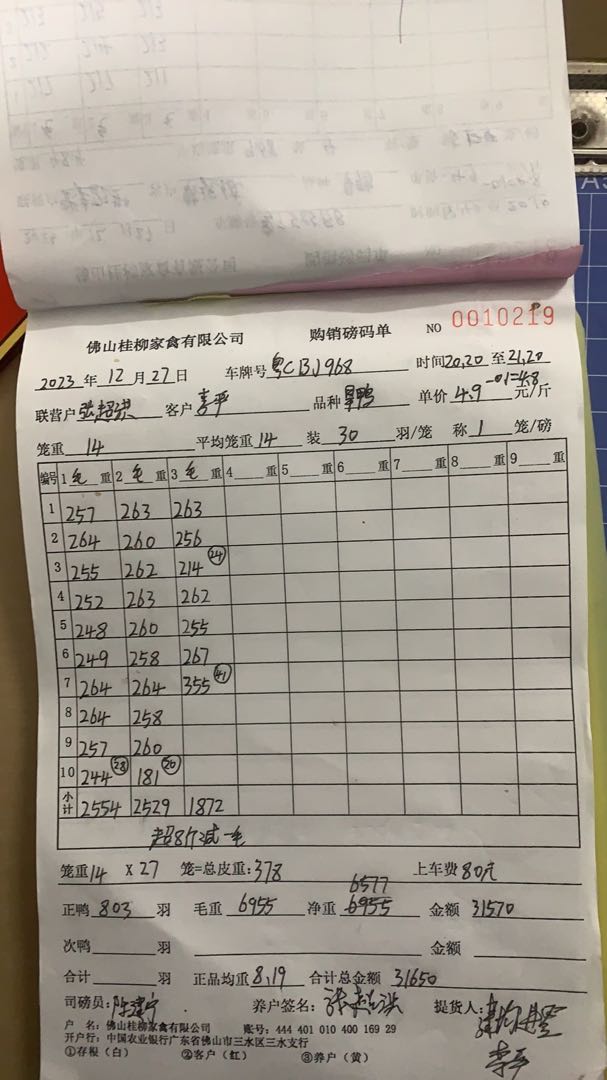 佛山桂柳家禽有限公司 购销磅码单 NO 0010219
2023年 12月27日 车牌号 粤CBJ968 时间20,20至21,20
联营户 张超洪 客户 李平 品种 单价 4.9-0.1=4.8 元/斤
笼重 14 平均笼重 14 装 30 羽/笼 称 1 笼/磅
编号 1 毛 重 2 毛 重 3 毛 重 4 重 5 重 6 重 7 重 8 重 9 重
1 257 263 263
2 264 260 256
3 255 262 214 24
4 252 263 262
5 248 260 255
6 249 258 267
7 264 264 355 41
8 264 258
9 257 260
10 244 28 181 20
小计 2554 2529 1872
超8个减一毛
笼重14 X 27 笼=总皮重:378 上车费80元
6577
正鸭 803 羽 毛重 6955 净重 6955 金额 31570
次鸭 羽 金额
合计 羽 正品均重 8,19 合计总金额 31650
司磅员: 养户签名: 张超洪 提货人:
李平
户 名:佛山桂柳家禽有限公司 账号:444 401 010 400 169 29
开户行:中国农业银行广东省佛山市三水区三水支行
①存根(白) ②客户(红) ③养户(黄)